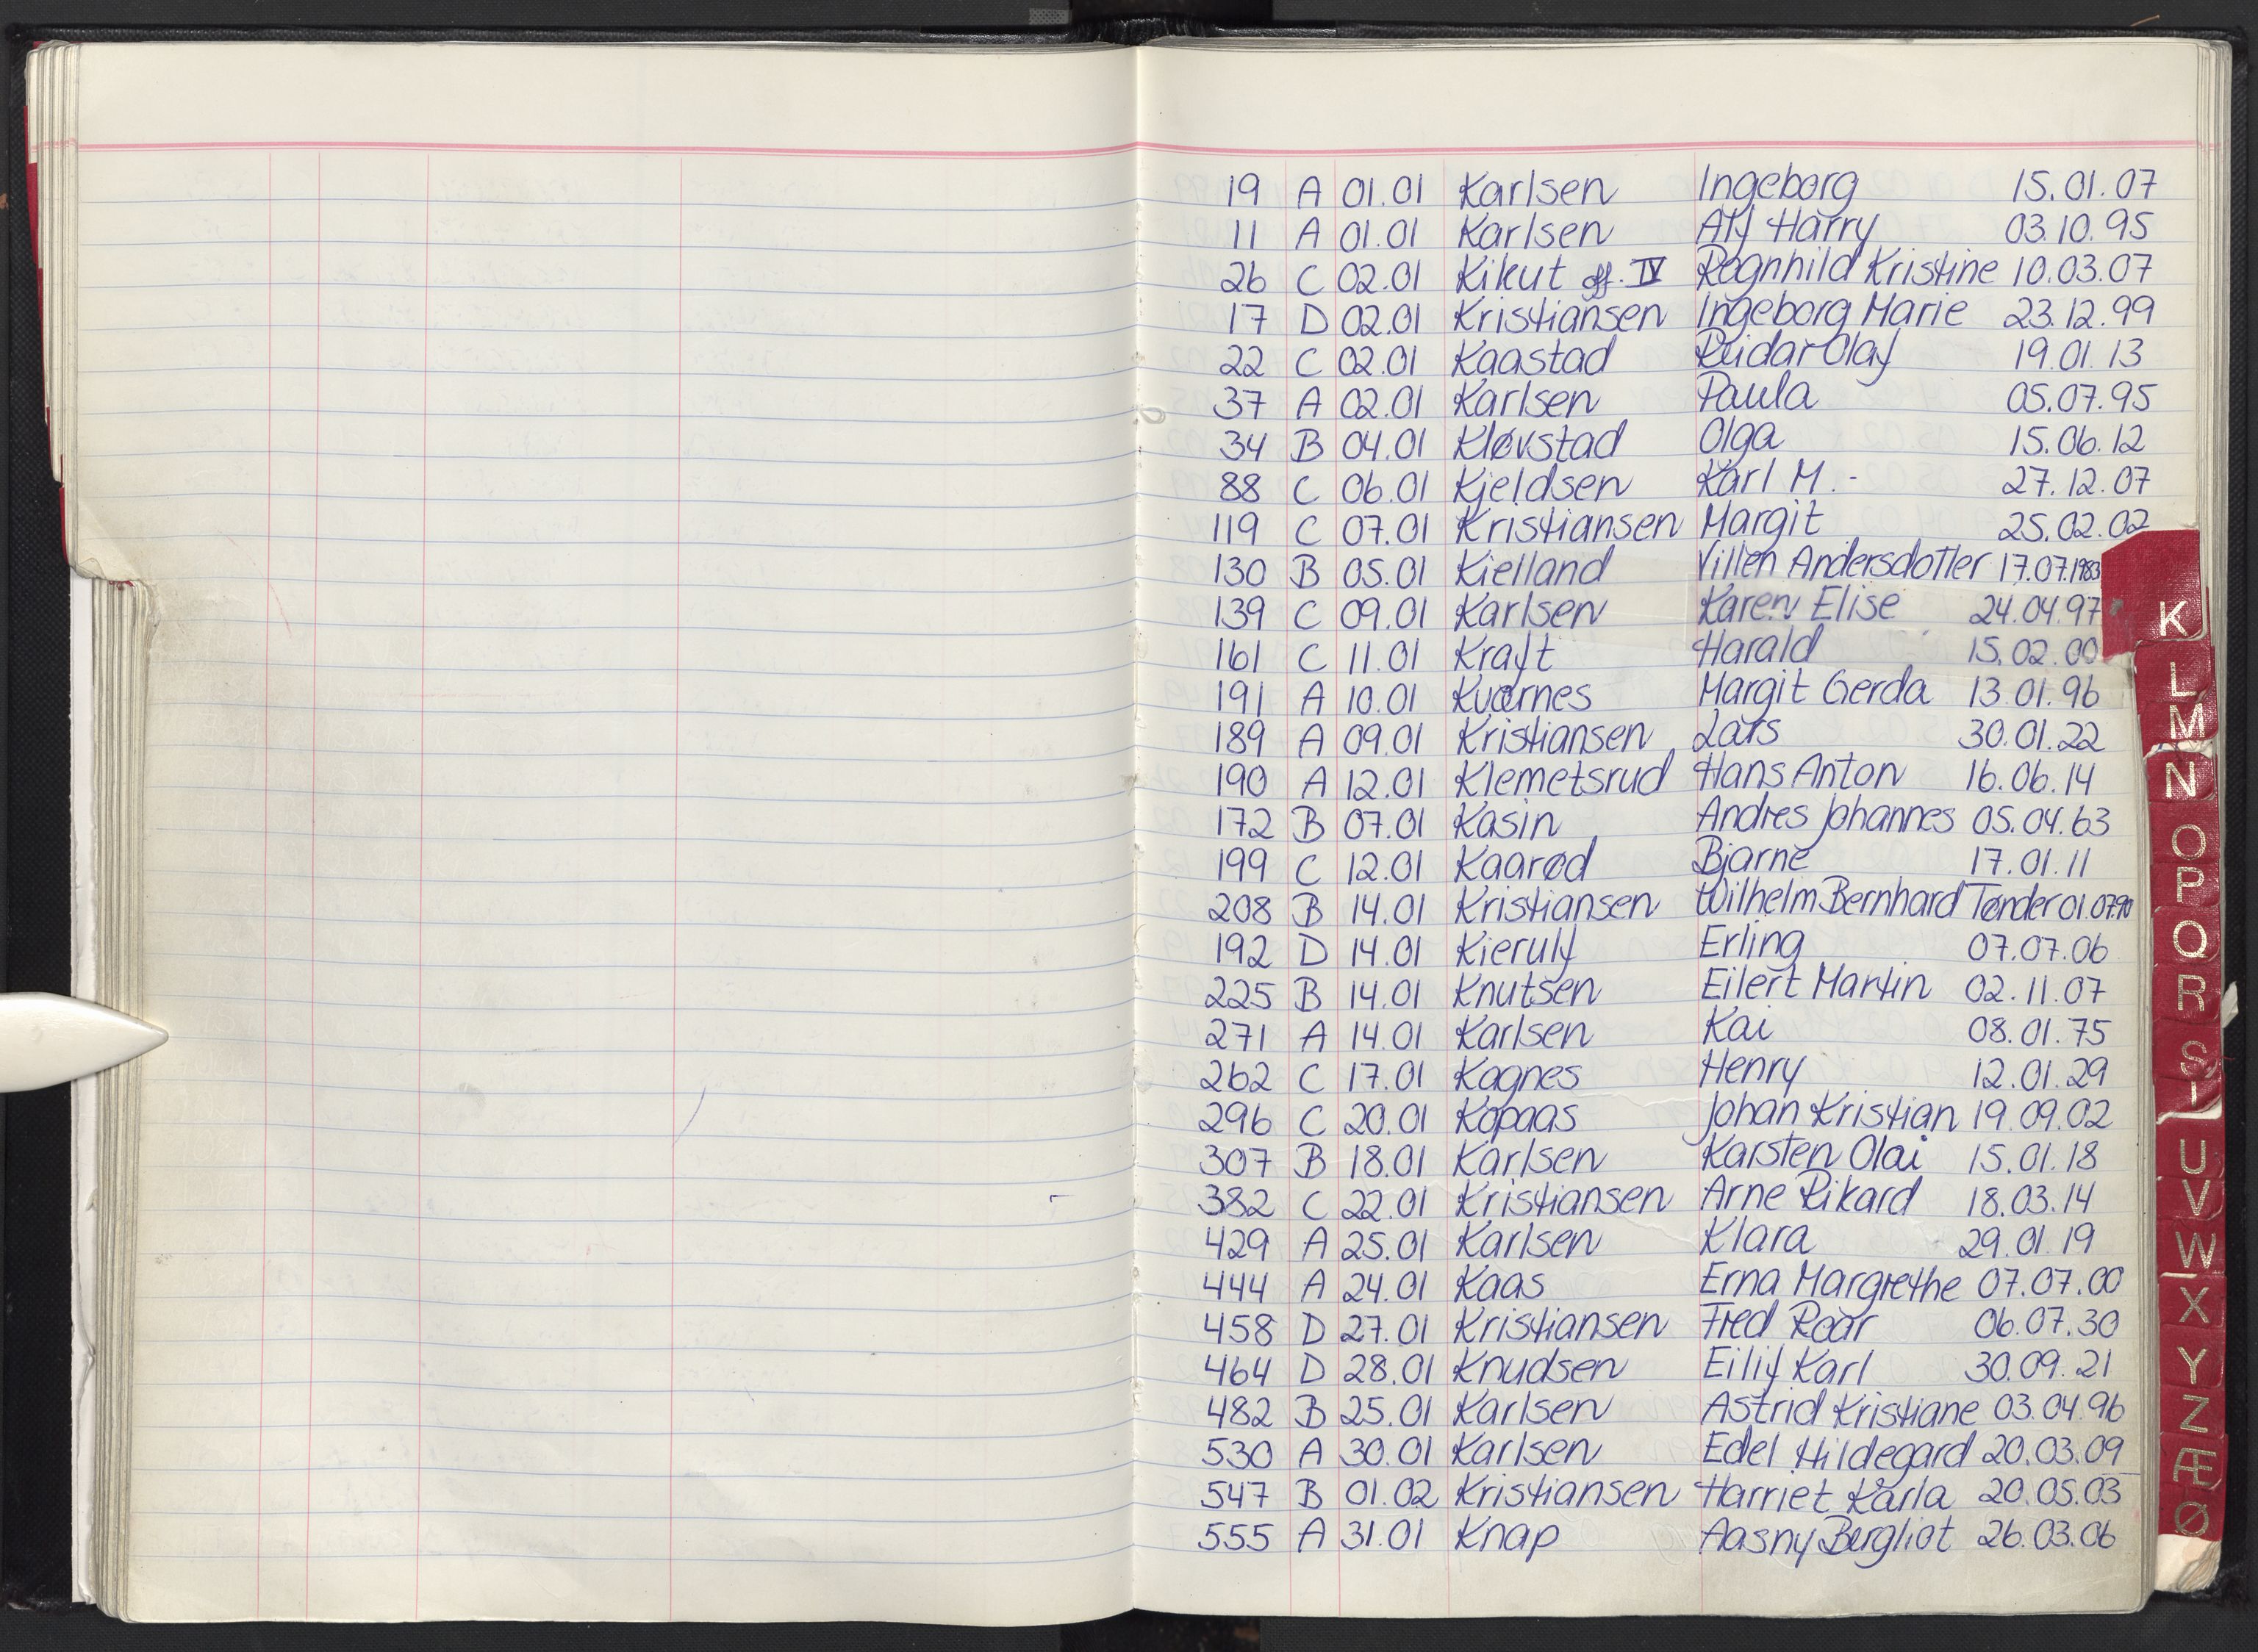 19 A 01.01 Karlsen Ingeborg 15.01.07
11 A 01.01 Karlsen Alf Harry 03.10.95
26 C 02.01 Kikut off. IV Ragnhild Kristine 10.03.07
17 D 02.01 Kristiansen Ingeborg Marie 23.12.99
22 C 02.01 Kaastad Reidar Olaf 19.01.13
37 A 02.01 Karlsen Paula 05.07.95
34 B 04.01 Kløvstad Olga 15.06.12
88 C 06.01 Kjeldsen Karl M.- 27.12.07
119 C 07.01 Kristiansen Margit 25.02.02
130 B 05.01 Kielland Villen Andersdotter 17.07.1983
139 C 09.01 Karlsen Karen Elise 24.04.97
161 C 11.01 Kraft Harald 15.02.00
191 A 10.01 Kvarnes Margit Gerda 13.01.96
189 A 09.01 Kristiansen Lars 30.01.22
190 A 12.01 Klemetsrud Hans Anton 16.06.14
172 B 07.01 Kasin Andres Johannes 05.04.63
199 C 12.01 Kaarød Bjarne 17.01.11
208 B 14.01 Kristiansen Wilhelm Bernhard Tønder 01.07.90
192 D 14.01 Kierulf Erling 07.07.06
225 B 14.01 Knutsen Eilert Martin 02.11.07
271 A 14.01 Karlsen Kai 08.01.75
262 C 17.01 Kagnes Henry 12.01.29
296 C 20.01 Kopaas Johan Kristian 19.09.02
307 B 18.01 Karlsen Karsten Olai 15.01.18
382 C 22.01 Kristiansen Arne Rikard 18.03.14
429 A 25.01 Karlsen Klara 29.01.19
444 A 24.01 Kaas Erna Margrethe 07.07.00
458 D 27.01 Kristiansen Fred Roar 06.07.30
464 D 28.01 Knudsen Eilif Karl 30.09.21
482 B 25.01 Karlsen Astrid Kristiane 03.04.96
530 A 30.01 Karlsen Edel Hildegard 20.03.09
547 B 01.02 Kristiansen Harriet Karla 20.05.03
555 A 31.01 Knap Aasny Bergliot 26.03.06
K
L
M
N
O
P
Q
R
S
T
U
V
W
X
Y
Z
Æ
Ø